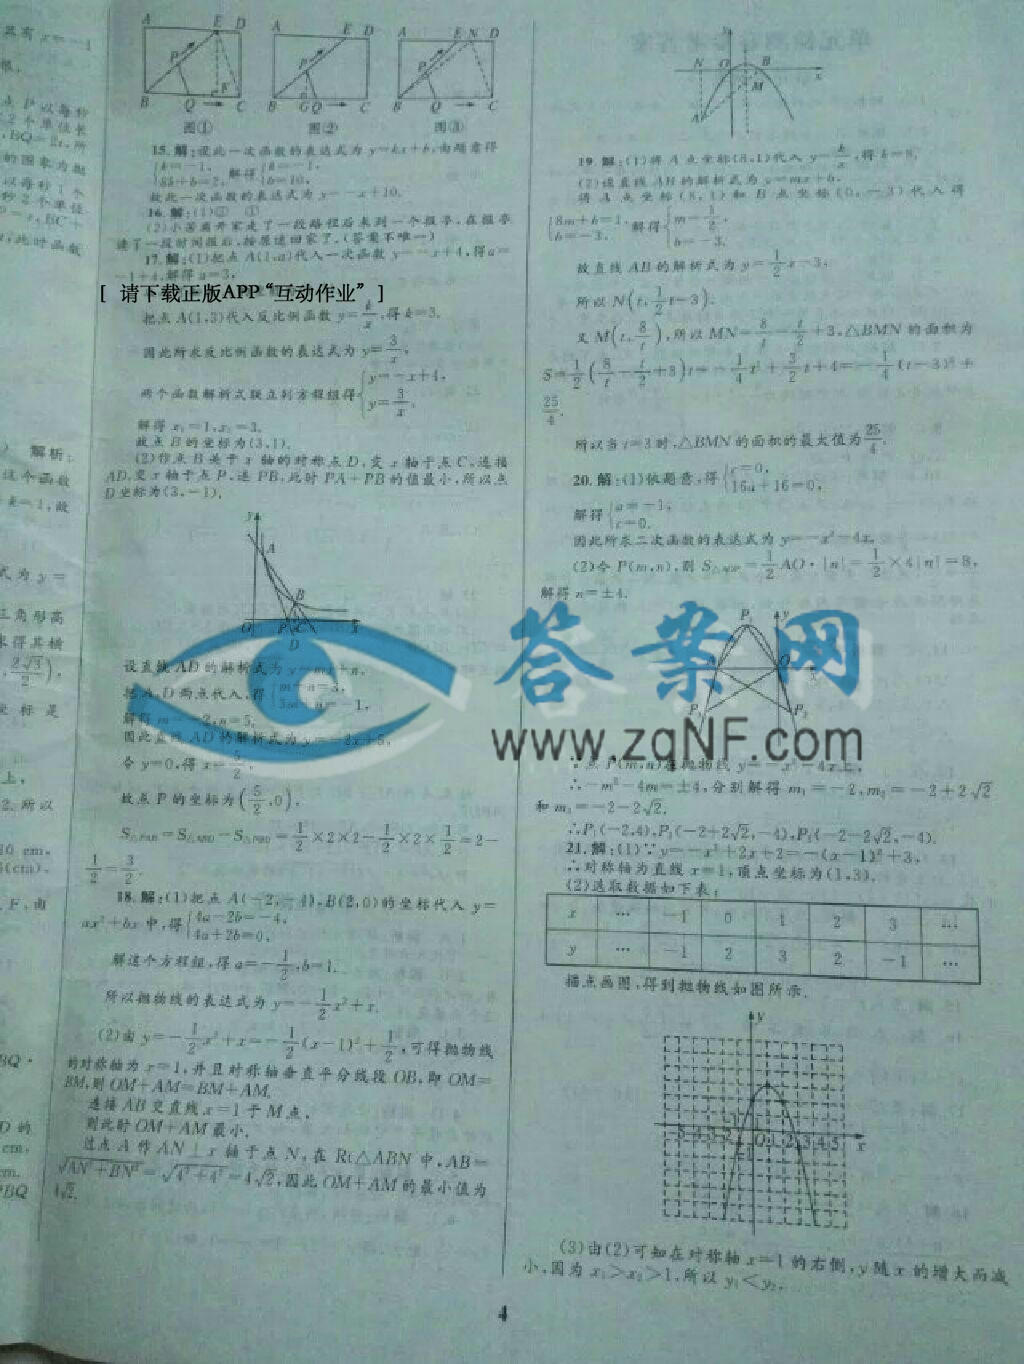 图① 图② 图③
15.解:设此一次函数的表达式为 y=kx+b,由题意得
故此一次函数的表达式为 y=-x+10.
16.解:(1)② ①
(2)小芳离开家走了一段路程后来到一个报亭,在报亭
读了一段时间报后,按原速回家了.(答案不唯一)
17.解:(1)把点 A(1,a)代入一次函数 y=-x+4,得a=
-1+4,解得a=3,
[ 请下载正版APP“互动作业” ]
把点 A(1,3)代入反比例函数 y=k/x,得 k=3,
因此所求反比例函数的表达式为 y=3/x,
两个函数解析式联立列方程组得{y=-x+4, y=3/x,
解得 x₁=1,x₂=3,
故点 B 的坐标为(3,1).
(2)作点 B 关于 x 轴的对称点 D,交 x 轴于点 C,连接
AD,交 x 轴于点 P,连 PB,此时 PA+PB 的值最小,所以点
D坐标为(3,-1).
设直线 AD 的解析式为 y=mx+n,
把 A,D 两点代入,得
解得 m=-2,n=5,
因此直线 AD 的解析式为 y=-2x+5,
令 y=0,得 x=5/2,
故点 P 的坐标为(5/2,0),
S△PAB=S△ABD-S△PBD=1/2×2×2-1/2×2×1/2=2-
1/2=3/2.
18.解:(1)把点 A(-2,-4),B(2,0)的坐标代入 y=
ax²+bx 中,得{4a-2b=-4, 4a+2b=0,
解这个方程组,得 a=-1/2,b=1.
所以抛物线的表达式为 y=-1/2x²+x.
(2)由 y=-1/2x²+x=-1/2(x-1)²+1/2,可得抛物线
的对称轴为 x=1,并且对称轴垂直平分线段 OB,即 OM=
BM,则 OM+AM=BM+AM.
连接 AB 交直线 x=1 于 M 点,
则此时 OM+AM 最小.
过点 A 作 AN⊥x 轴于点 N,在 Rt△ABN 中,AB=
√AN²+BN²=√4²+4²=4√2,因此 OM+AM 的最小值为
4√2.
19.解:(1)将 A 点坐标(8,1)代入 y=k/x,得 k=8.
(2)设直线 AB 的解析式为 y=mx+b,
将 A 点坐标(8,1)和 B 点坐标(0,-3)代入得
{8m+b=1, b=-3, 解得{m=1/2, b=-3,
故直线 AB 的解析式为 y=1/2x-3,
所以 N(t,1/2t-3),
又 M(t,8/t),所以 MN=8/t-t/2+3,△BMN 的面积为
S=1/2(8/t-t/2+3)t=-1/4t²+3/2t+4=-1/4(t-3)²+
25/4.
所以当 t=3 时,△BMN 的面积的最大值为25/4.
20.解:(1)依题意,得{c=0, 16a+16=0,
解得{a=-1, c=0.
因此所求二次函数的表达式为 y=-x²-4x.
(2)令 P(m,n),则 S△AOP=1/2AO·|n|=1/2×4|n|=8,
解得 n=±4.
答案网
www.zqNF.com
∵点 P(m,n)在抛物线 y=-x²-4x上,
∴-m²-4m=±4,分别解得 m₁=-2,m₂=-2+2√2
和 m₃=-2-2√2.
∴P₁(-2,4),P₂(-2+2√2,-4),P₃(-2-2√2,-4).
21.解:(1)∵y=-x²+2x+2=-(x-1)²+3,
∴对称轴为直线 x=1,顶点坐标为(1,3).
(2)选取数据如下表:
x … -1 0 1 2 3 …
y … -1 2 3 2 -1 …
描点画图,得到抛物线如图所示.
(3)由(2)可知在对称轴 x=1 的右侧,y 随 x 的增大而减
小,因为 x₁>x₂>1,所以 y₁<y₂.
4